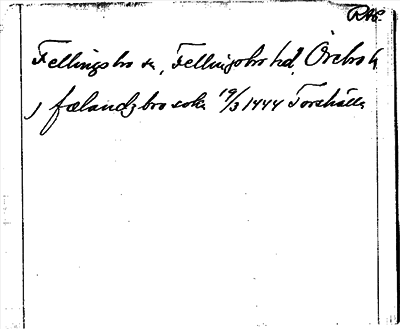 RAP.
Fellingsbro sn, Fellingsbro hd, Örebro l.
j fælandzbro sokn 19/3 1444 Torshälla